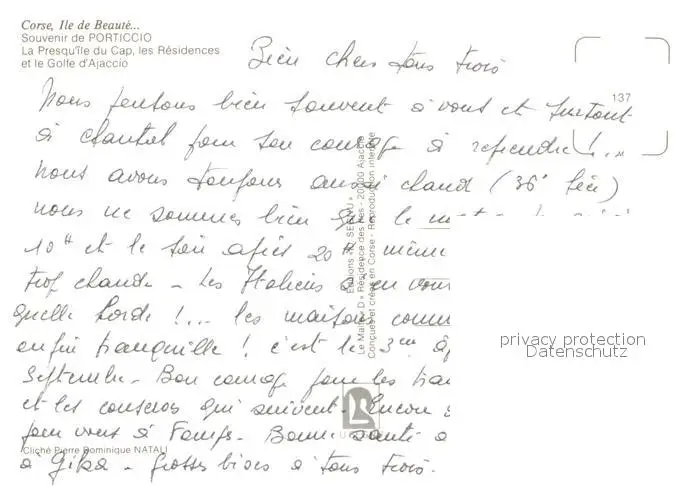 Corse, Ile de Beauté...
Souvenir de PORTICCIO
La Presqu'île du Cap, les Résidences
et le Golfe d'Ajaccio
137
Bien chers tous trois
Nous pensons bien souvent à vous et surtout
à chantal pour son courage à reprendre !...
nous avons toujours aussi chaud (36°
nous ne sommes bien que le
10H et le soir après 20H même
trop chaude - Les Italiens
quelle horde !... les maisons
enfin tranquille ! c'est le 3em
Septembre - Bon courage pour les
et les conseros qui suivent. Encore
pour vous à - Bonne santé
à Gika - grosses bises à tous trois.
Le Maltais « D » Résidence des Iles - 20000 Ajaccio
Conçues et créées en Corse - Reproduction interdite
Cliché Pierre Dominique NATALI
privacy protection
Datenschutz